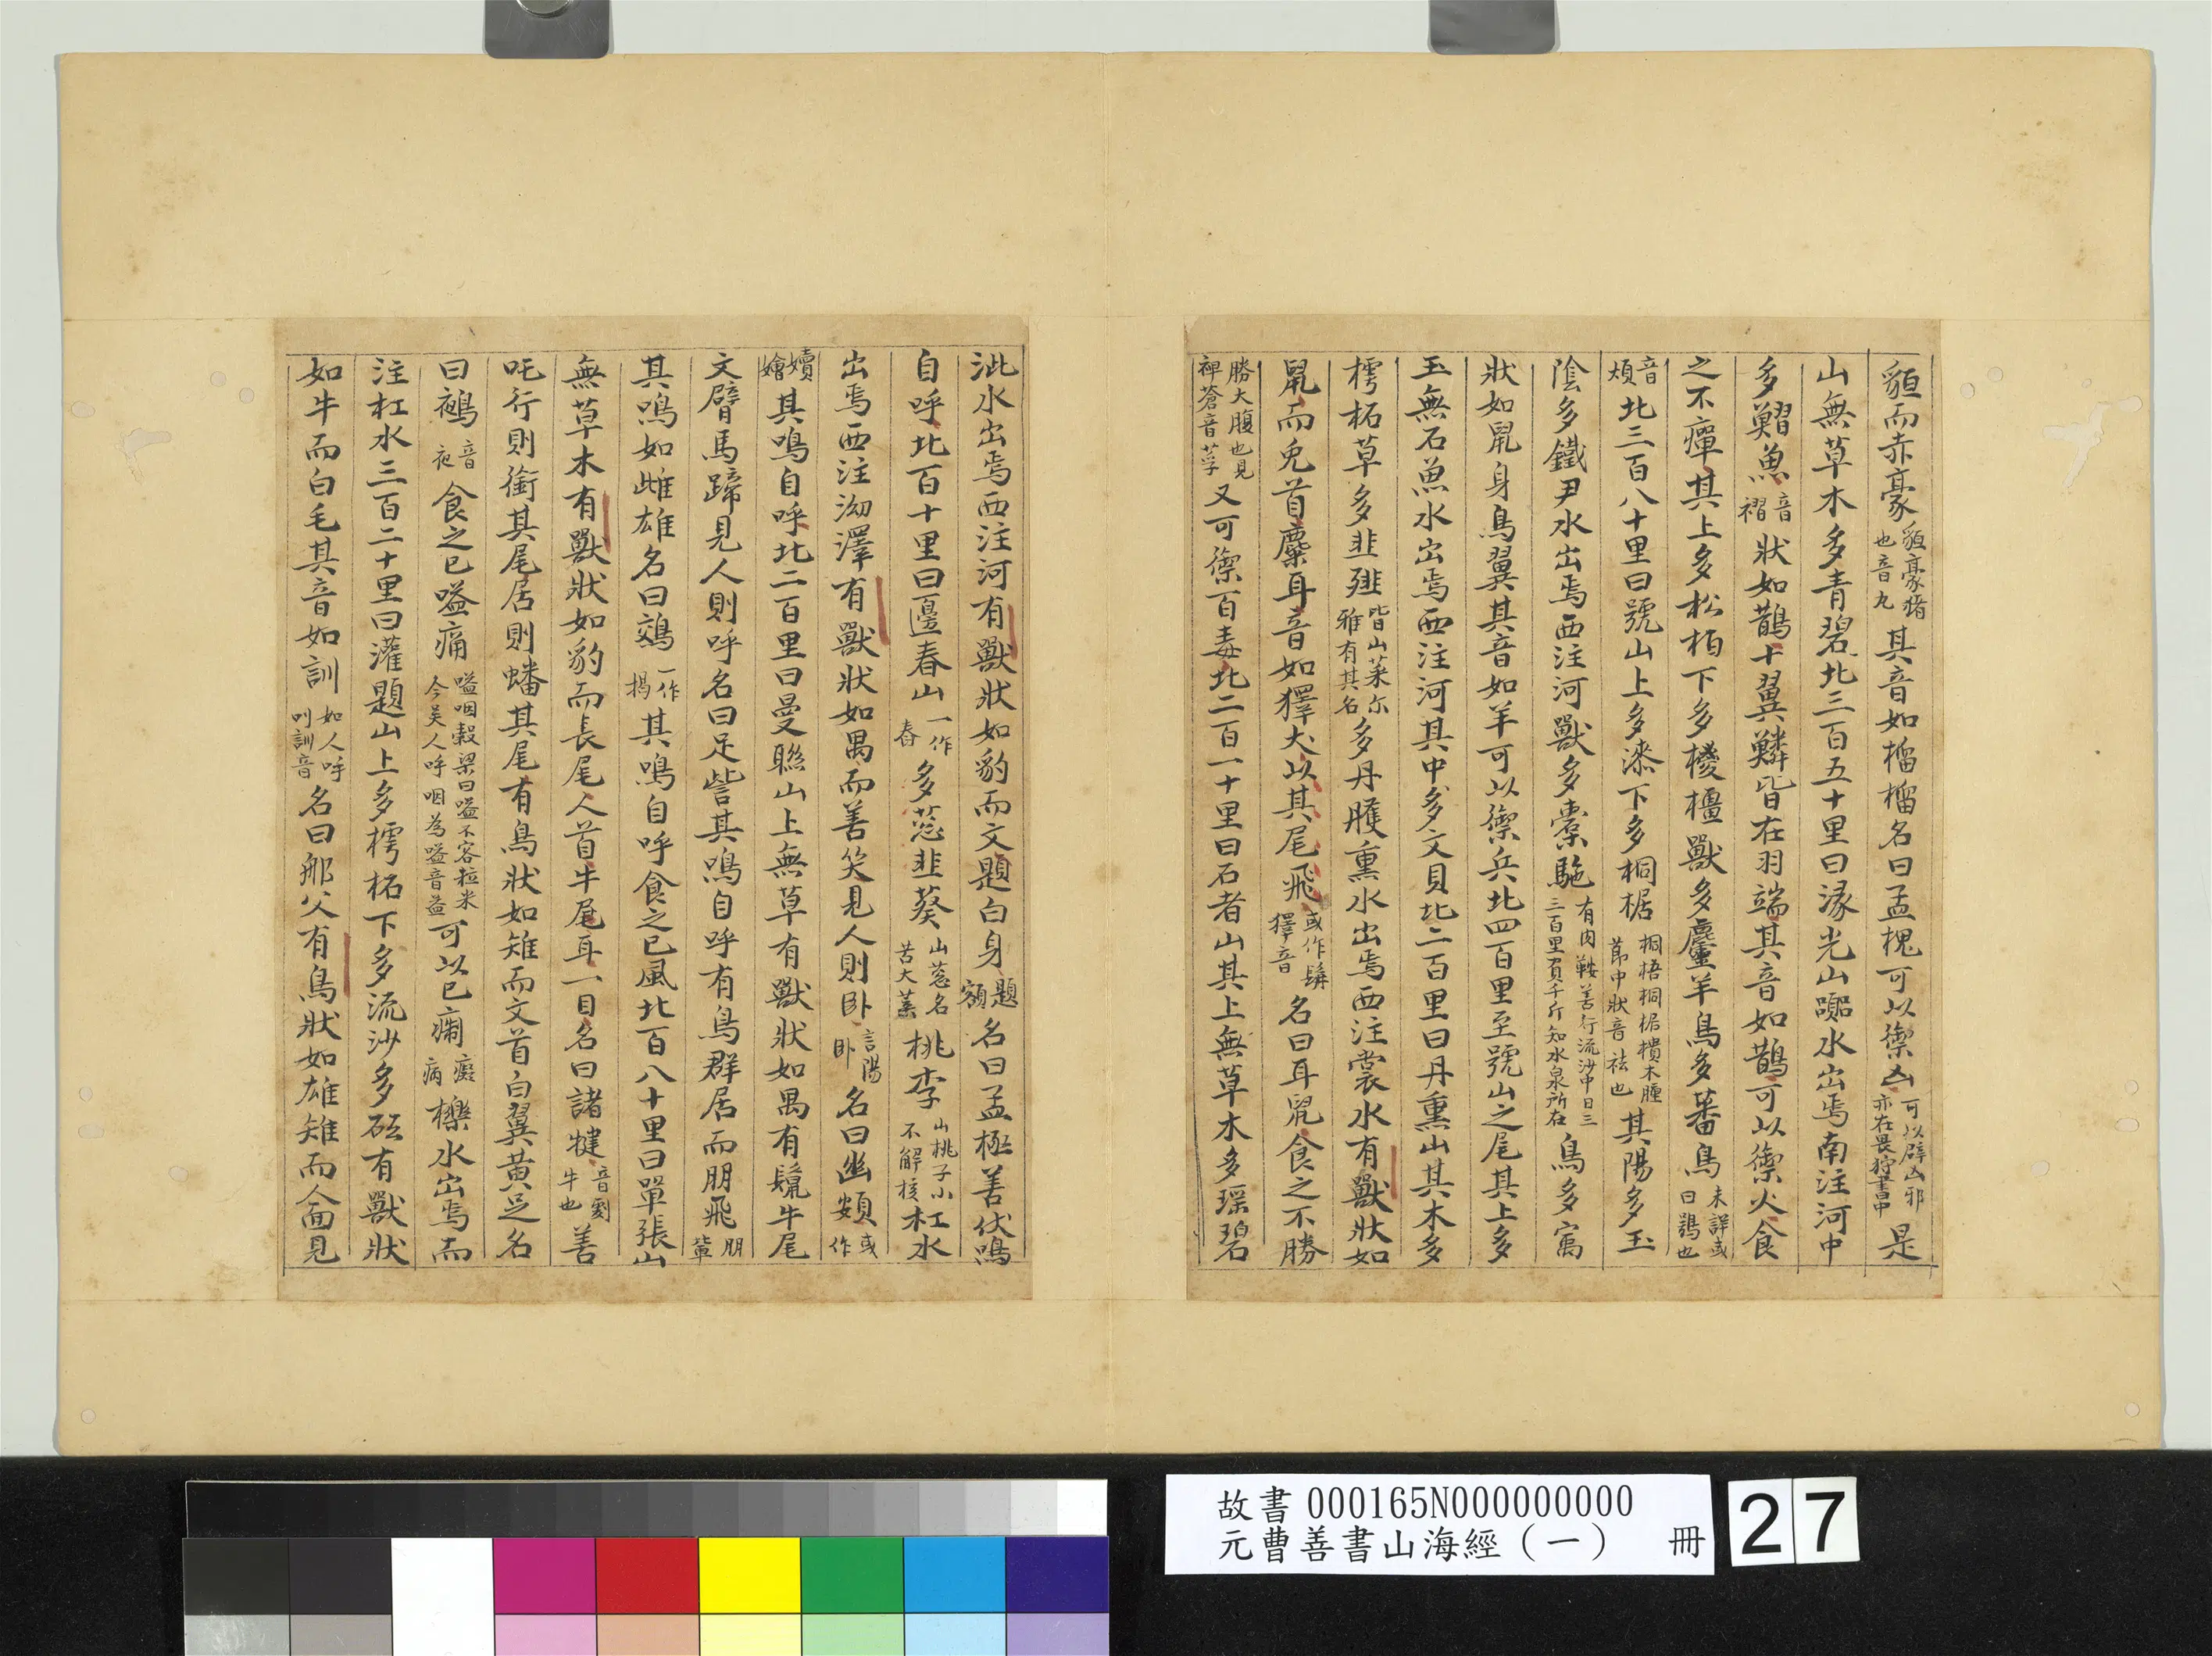 貆而赤豪貆豪猪也音丸其音如榴榴名曰孟槐可以禦凶可以辟凶邪亦在畏狩書中是
山無草木多青碧北三百五十里曰涿光山囂水出焉南注河中
多鰼魚音褶狀如鵲十翼鱗皆在羽端其音如鵲可以禦火食
之不癉其上多松栢下多椶橿獸多麢羊鳥多蕃鳥未詳或曰鴞也
音煩北三百八十里曰號山上多漆下多桐椐桐梧桐椐樻木腫節中狀音祛也其陽多玉
陰多鐵尹水出焉西注河獸多橐駞有肉鞍善行流沙中日三三百里負千斤知水泉所在鳥多寓
狀如鼠身鳥翼其音如羊可以禦兵北四百里至號山之尾其上多
玉無石魚水出焉西注河其中多文貝北二百里曰丹熏山其木多
樗柘草多韭䪥皆山菜尔雅有其名多丹雘熏水出焉西注裳水有獸狀如
鼠而兔首麋耳音如獆犬以其尾飛或作髯獆音名曰耳鼠食之不勝
勝大腹也見裨蒼音莩又可禦百毒北二百一十里曰石者山其上無草木多瑶碧
泚水出焉西注河有獸狀如豹而文題白身題額名曰孟極善伏鳴
自呼北百十里曰邊春山一作春多䓗韭葵山䓗名苦大葉桃李山桃子小不解核杠水
出焉西注泑澤有獸狀如禺而善笑見人則卧言陽卧名曰幽頞或作
嬻嬒其鳴自呼北二百里曰曼聮山上無草有獸狀如禺有鬛牛尾
文臂馬蹄見人則呼名曰足訾其鳴自呼有鳥群居而朋飛朋輩
其鳴如雌雄名曰鵁一作揭其鳴自呼食之已風北百八十里曰單張山
無草木有獸狀如豹而長尾人首牛尾耳一目名曰諸犍音劇牛也善
吒行則銜其尾居則蟠其尾有鳥狀如雉而文首白翼黃足名
曰鵺音夜食之已嗌痛嗌咽穀梁曰嗌不容粒米今吴人呼咽為嗌音益可以已癇癡病櫟水出焉而
注杠水三百二十里曰灌題山上多樗柘下多流沙多砥有獸狀
如牛而白毛其音如訓如人呼叫訓音名曰那父有鳥狀如雄雉而人面見
故書000165N000000000
元曹善書山海經（一） 冊
27